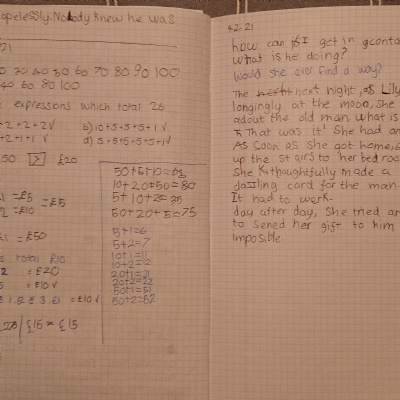 opelessly. Nobody knew he was
21
0 30 40 50 60 70 80 90 100
40 60 80 100
expressions which total 26
+2+2+2√
b) 10+5+5+5+1√
+2+1+1 √
d) 5+5+5+5+5+1√
£50 > £20
50+5+10=65
10+20+50=80
5+10+2=
50+20+5=75
=£5
=£5
=£10
=£50
5+1=6
5+2=7
10+1=11
10+2=12
20+1=21
20+2=22
50+1=51
50+2=52
total £10
=£20
=£10√
=£10√
£15 = £15
42.21
how can I get in
what is he doing?
would she ever find a way?
The next night, as Lily
longingly at the moon, she
adout the old man what is
That was it! She had an
As soon as she got home,
up the stairs to her bedroo
She thoughtfully made a
dazzling card for the man.
It had to work.
day after day, She tried an
to sened her gift to him
Imposible